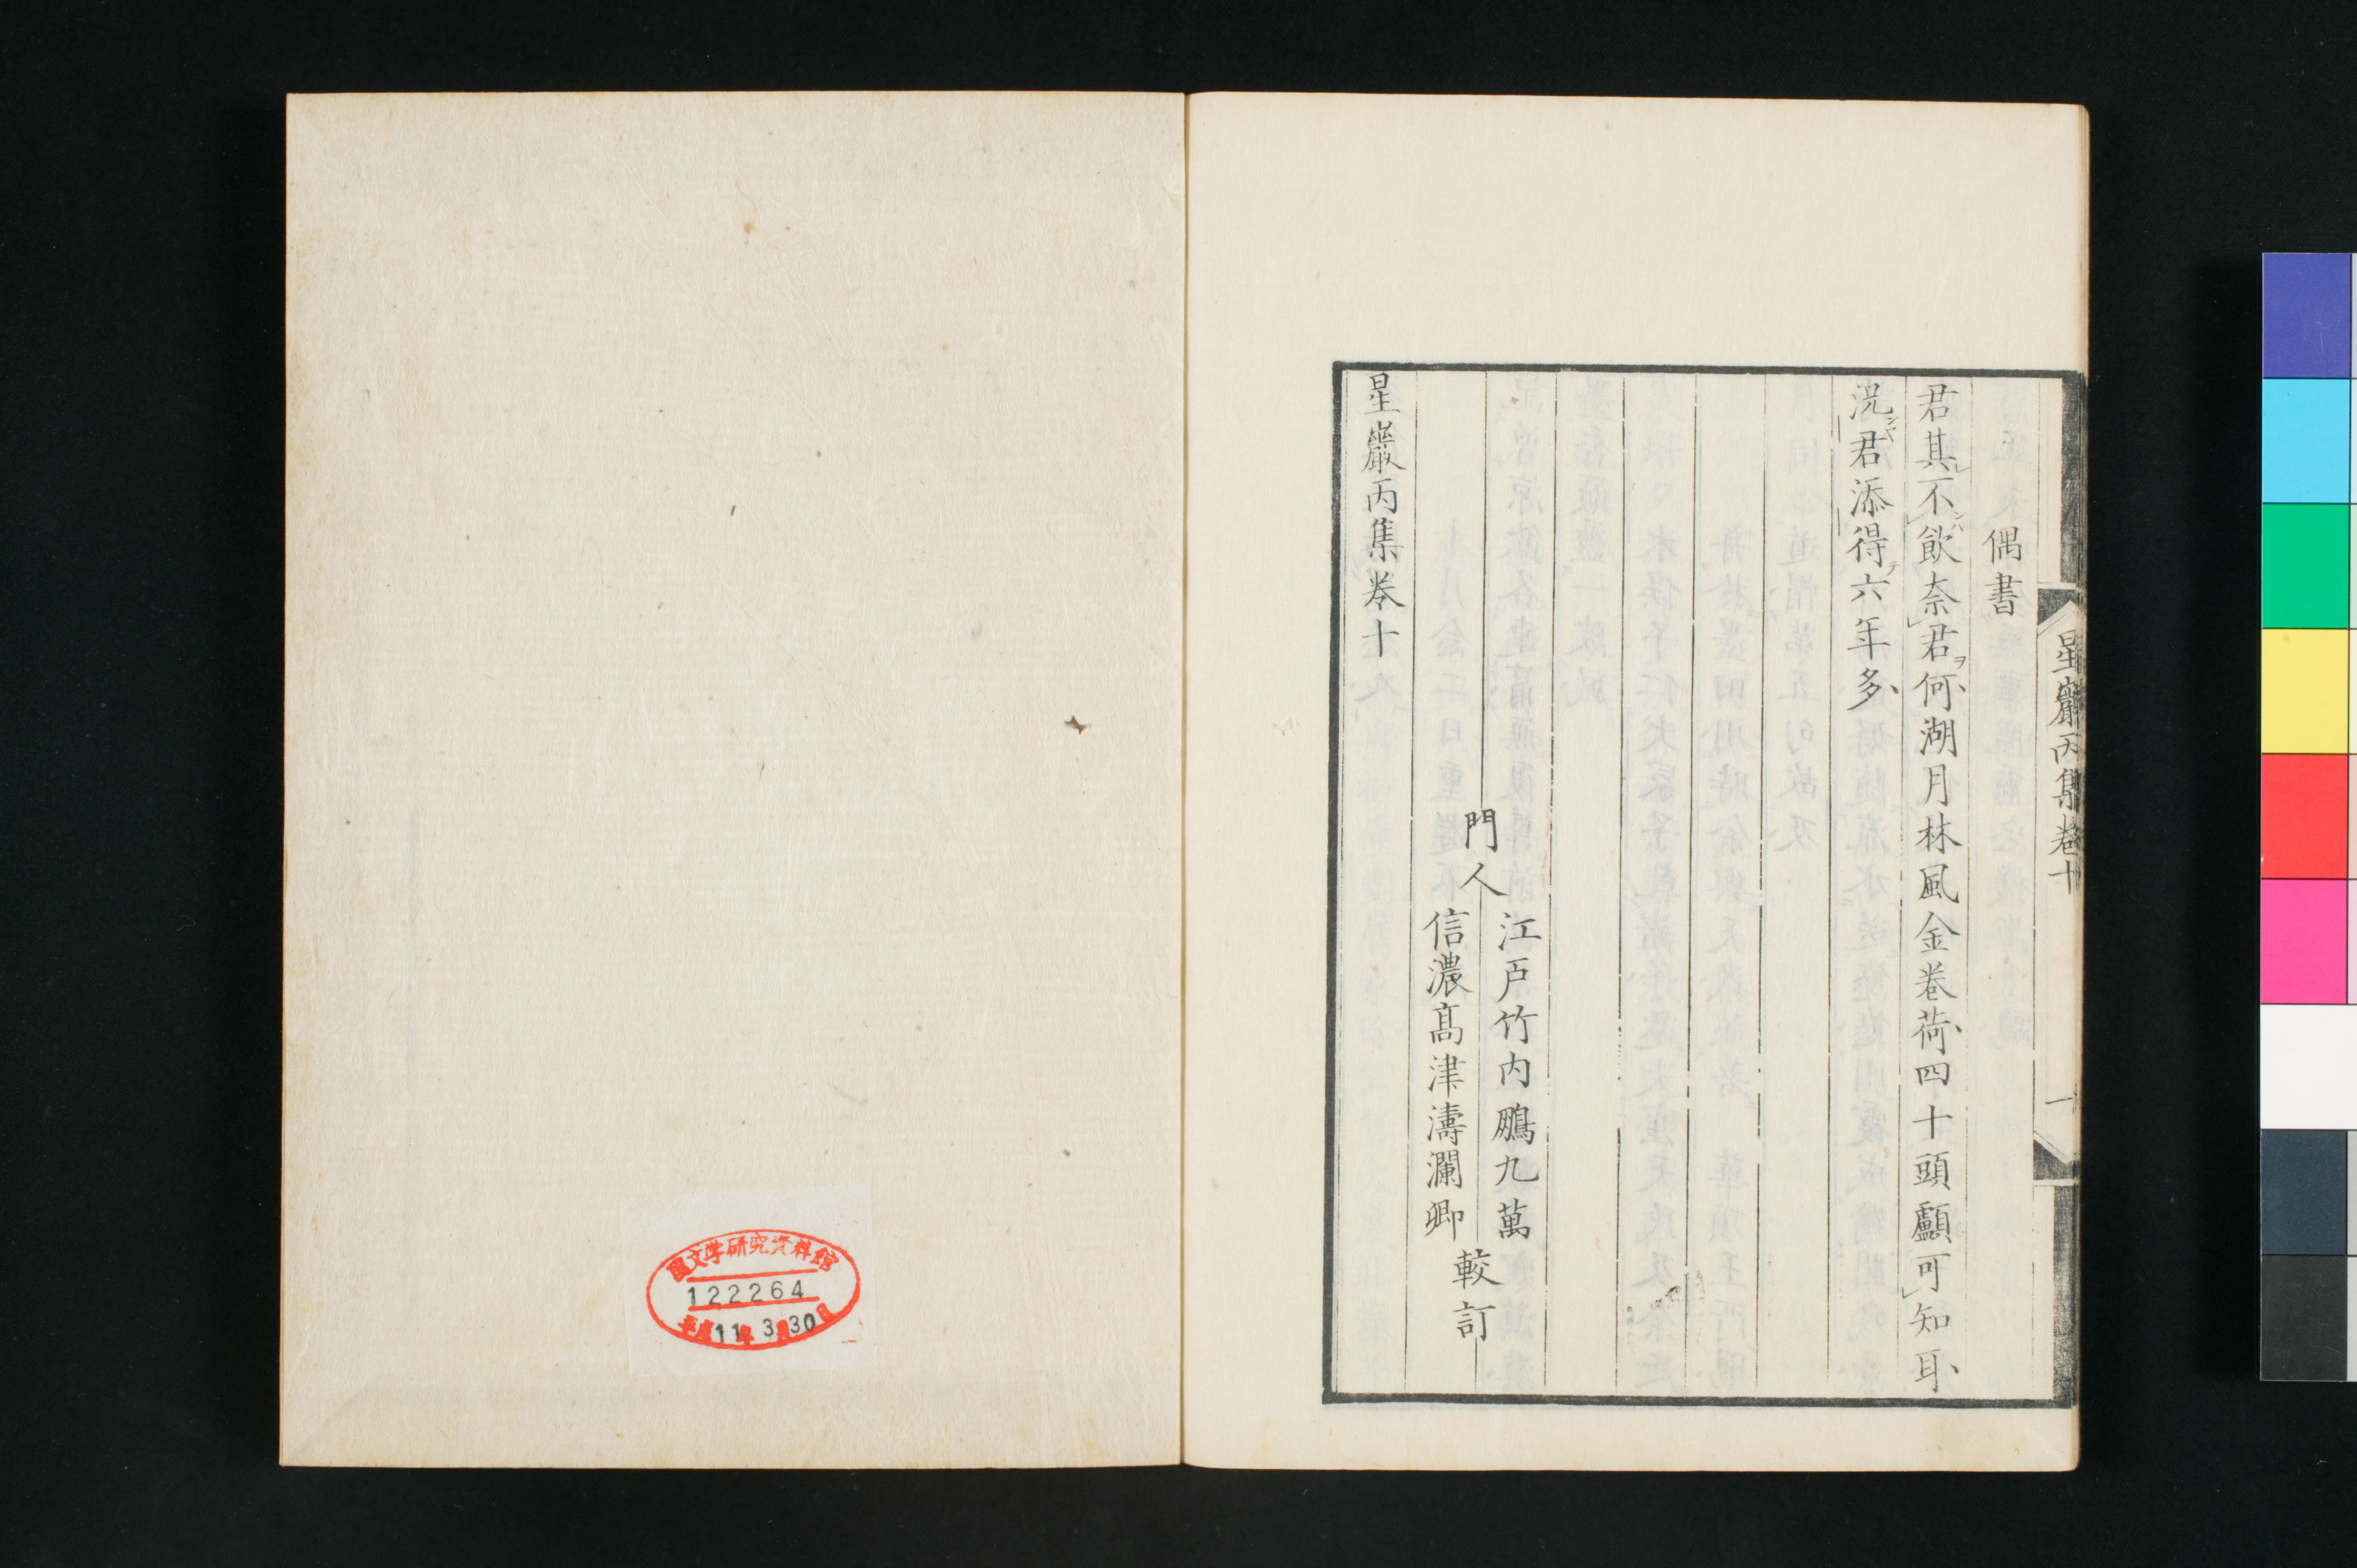 偶書
君其不飲奈君何湖月林風金卷荷四十頭顱可知耳
況君添得六年多
門人
江戸竹内鵬九萬
信濃髙津濤瀾卿
較訂
星巖丙集卷十
星巖丙集卷十
一
国文学研究資料館
122264
平成11年3月30日